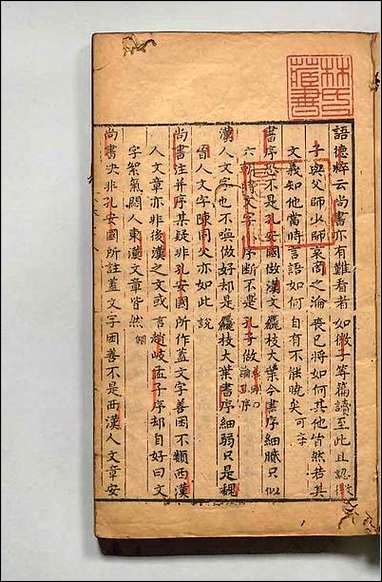 林氏
藏書
語德粹云尚書亦有難看者如微子等篇讀至此且認微
子與父師少師哀商之淪喪已將如何其他皆然若其
文義知他當時言語如何自有不能曉矣可學
書序恐不是孔安國做漢文麄枝大葉今書序細膩只似
六朝時文字小序斷不是孔子做
漢人文字也不喚做好却是麄枝大葉書序細弱只是魏
晉人文字陳同父亦如此說
尚書注并序某疑非孔安國所作蓋文字善困不類西漢
人文章亦非後漢之文或言趙岐孟子序却自好曰文
字絮氣悶人東漢文章皆然
尚書决非孔安國所註蓋文字困善不是西漢人文章安